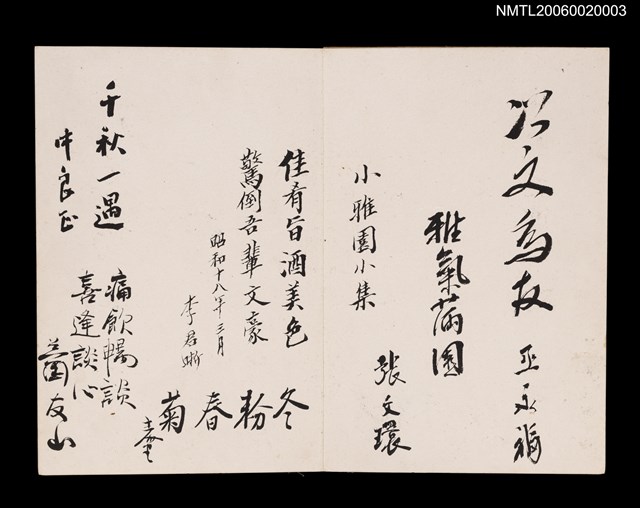 NMTL20060020003
以文為友 巫永福
雅氣滿園
小雅園小集
張文環
佳肴旨酒美色
驚倒吾輩文豪
昭和十八年三月
李君晰
冬粉春菊
千秋一遇
良正
痛飲暢談
喜逢談心
友山